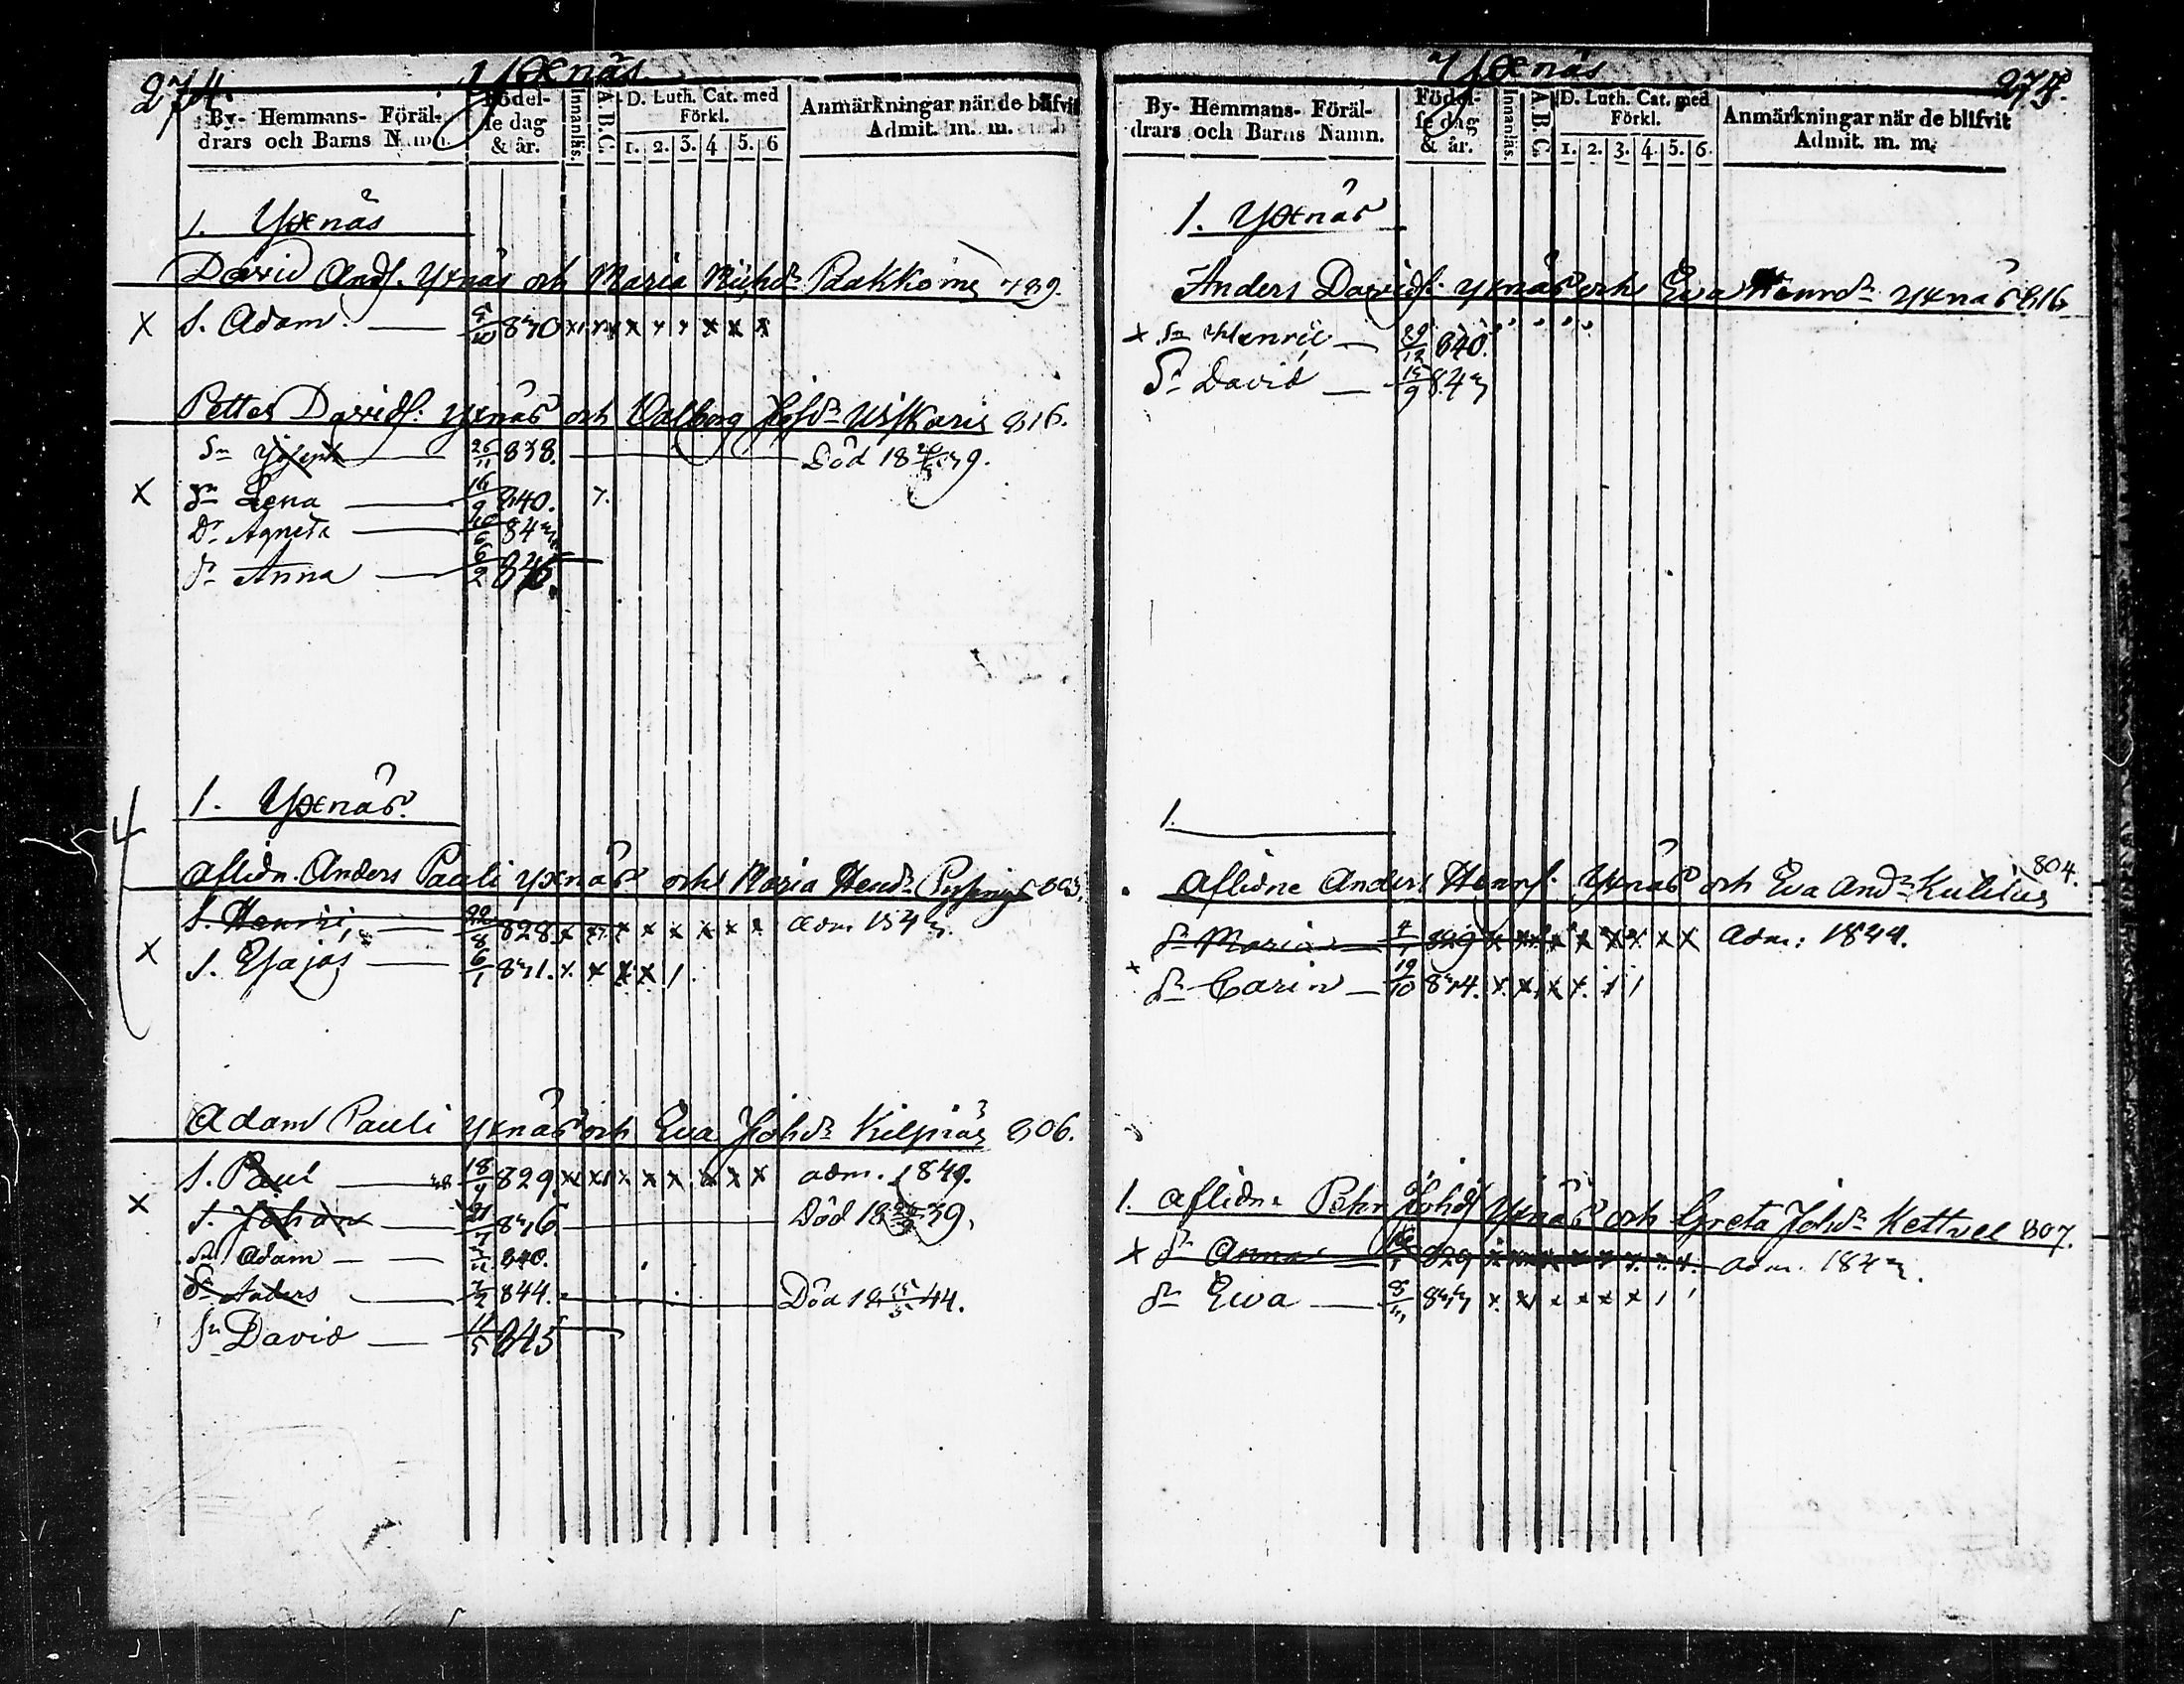 274.
Yxnäs
By- Hemmans- Föräl-
drars och Barns Namn.
Födel-
se dag
& år.
Innanläs.
A. B. C.
D. Luth. Cat. med
Förkl.
1. 2. 3. 4. 5. 6
Anmärkningar när de blifvit
Admit. m. m.
1. Yxnäs
David Andſ. Yxnäs och Maria Paakkoine 789.
X S. Adam. 10 830 x x x x x x
Petter Davidſ: Yxnäs och Valborg Uskaris 816.
Sn Joseph 26/11 838. Död 18 39.
X Dr Lena 16/9 840. 7.
Dr Agneta 843
Dr Anna 6/2 845.
1. Yxnäs
4
Aflidn. Anders Pauli Yxnäs och Maria Hendr 803.
S. Henric 22/8 828. x x x x x x x adm 1843.
X S. Esajas 6/1 831. x x x x 1
Adam Pauli Yxnäs och Eva Johdr Kilpiäs 806.
S. Paul 18/9 829. x x x x x x x x adm. 1849.
X S. Johan 21 836 Död 18 39.
Sn Adam 840.
Sn Anders 7/2 844. Död 18 15/5 44.
Sn David 11/5 845
Yxnäs
275.
By- Hemmans- Föräl-
drars och Barns Namn.
Födel-
se dag
& år.
Innanläs.
A. B. C.
D. Luth. Cat. med
Förkl.
1. 2. 3. 4. 5. 6.
Anmärkningar när de blifvit
Admit. m. m.
1. Yxnäs
Anders Davidſ. Yxnäs och Eva Henrdr Yxnäs 816
x Sn Henric 29/12 840.
Sn David 15/9 843
1.
Aflidne Anders Henrſ. Yxnäs och Eva Andr Kulitius 804.
Dr Maria 829 x x x x x x x x Adm: 1844.
x Dr Carin 19/10 834. x x x x 1 1
1. Aflidne Pehr Johdſ Yxnäs och Greta Johdr Kettuel 807.
X Dr Anna 829 x x x x x x x x adm. 1843.
Dr Ewa 833 x x x x x x 1 1